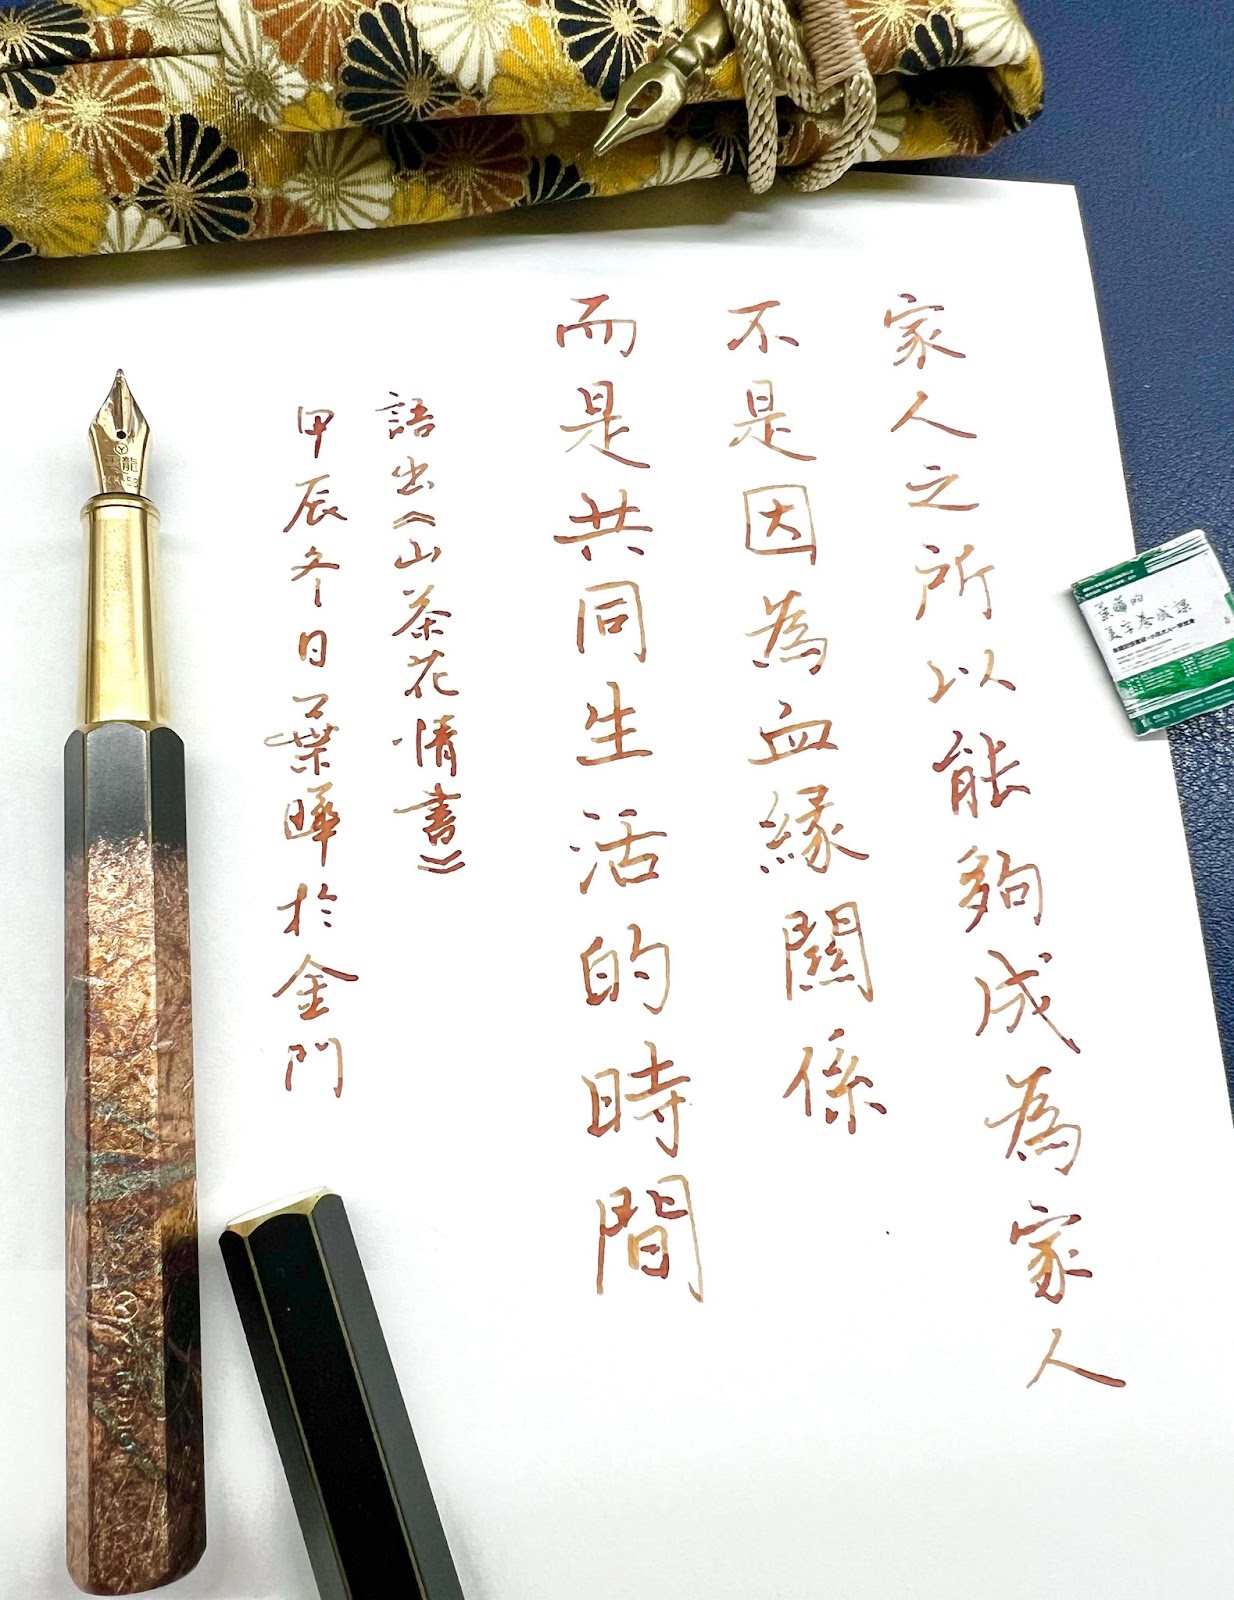 家人之所以能夠成為家人
不是因為血緣關係
而是共同生活的時間
語出《山茶花情書》
甲辰冬日葉曄於金門
葉曄的
美字養成課